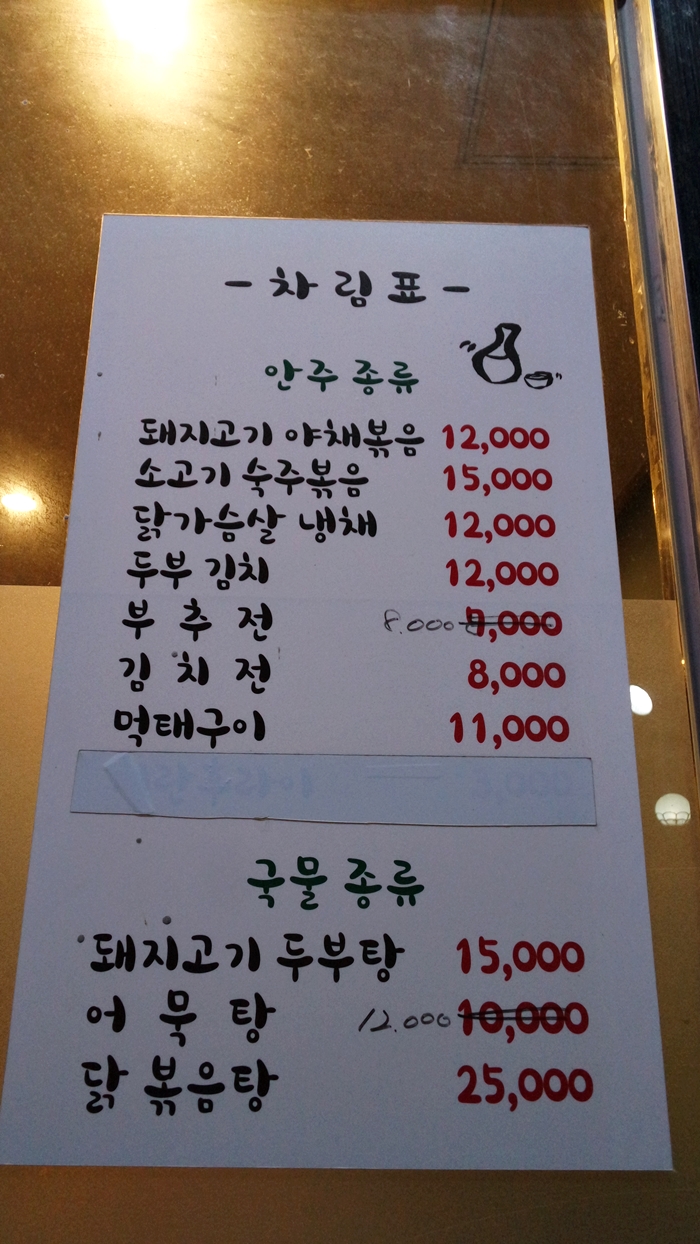 - 차림표 -
안주 종류
돼지고기 야채볶음 12,000
소고기 숙주볶음 15,000
닭가슴살 냉채 12,000
두부 김치 12,000
부 추 전 8.000 7,000
김 치 전 8,000
먹태구이 11,000
국물 종류
돼지고기 두부탕 15,000
어 묵 탕 12.000 10,000
닭 볶음탕 25,000